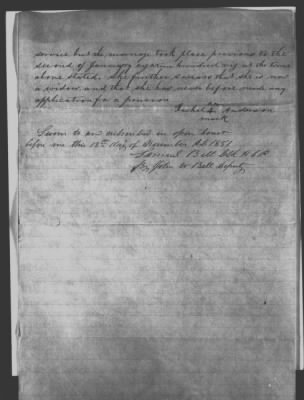 service but the marriage took place previous to the
second of January eighteen hundred viz at the time
above stated. She further swears that she is now
a widow and that she has never before made any
application for a pension
Rachel Anderson
mark
Sworn to and subscribed in open Court
before me this 15th day of September AD 1851
Samuel Bell Clk
By John W Bell Deputy